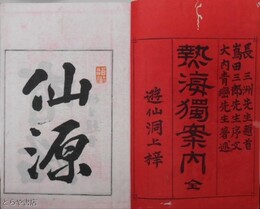 長三洲先生題首
島田三郎先生序文
大内青巒先生著述
熱海獨案内 全
遊仙洞上梓
仙源
とらや書店